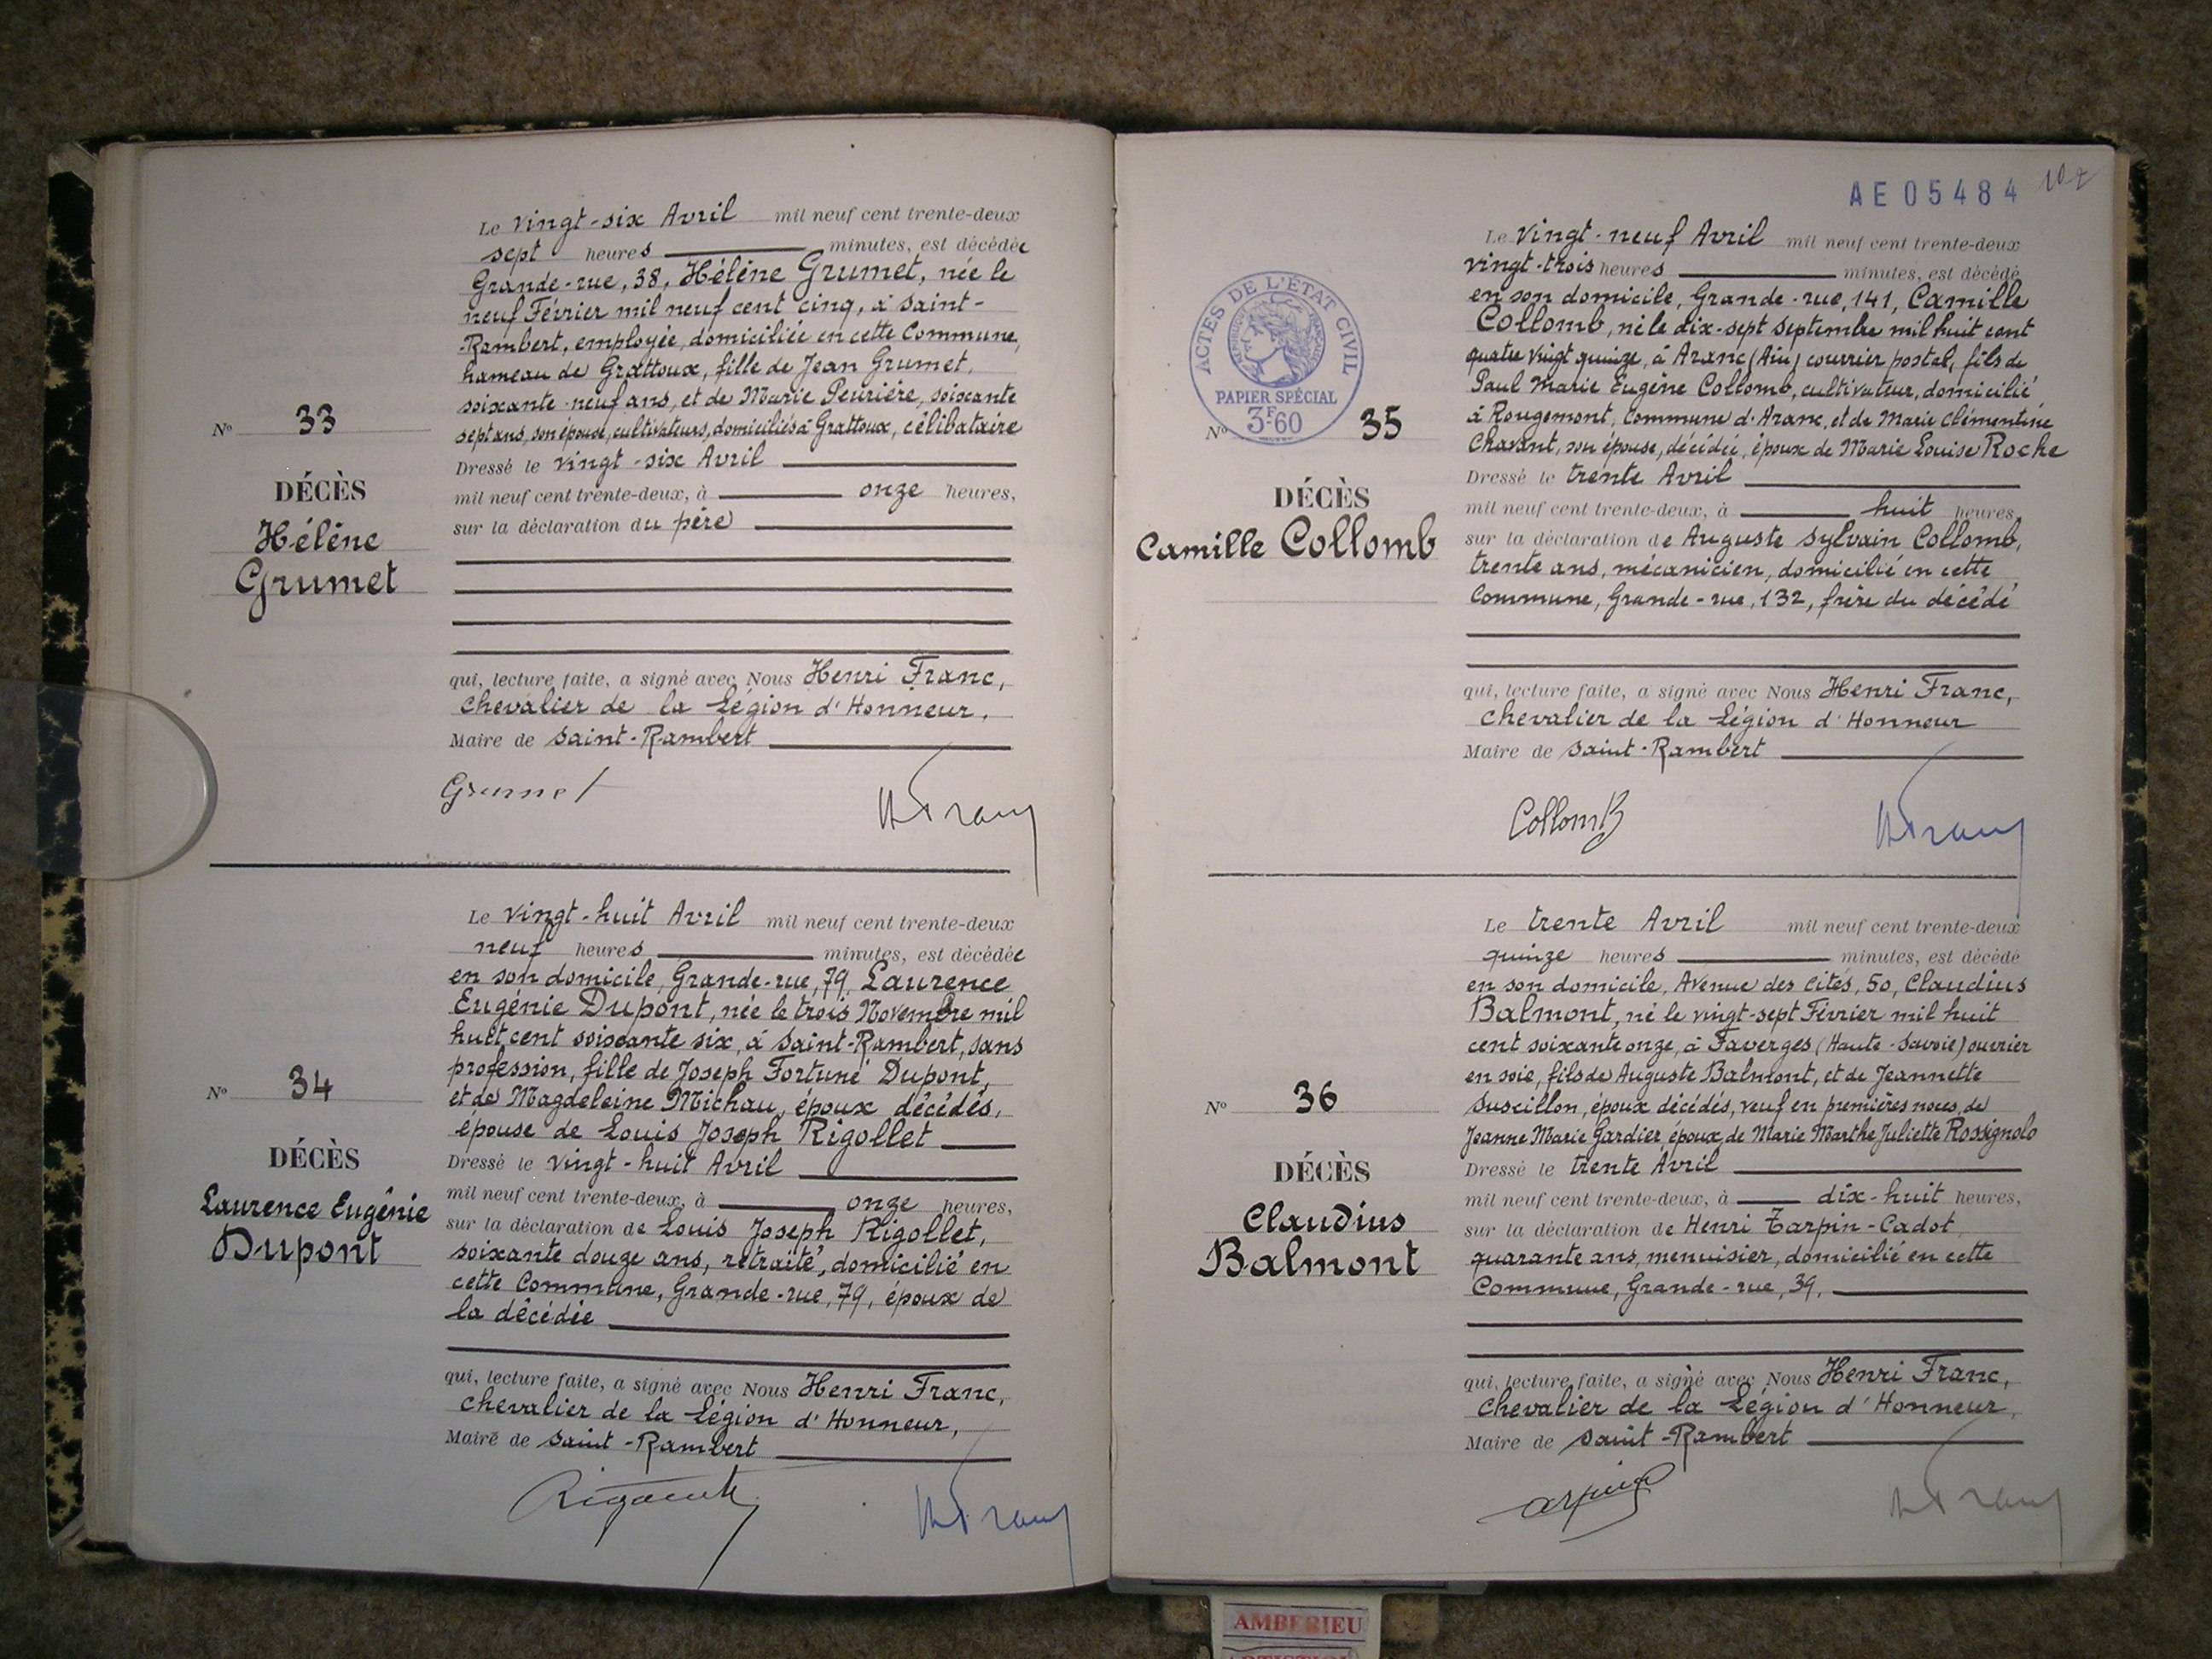 Le vingt-six Avril mil neuf cent trente-deux
sept heures minutes, est décédée
Grande-rue, 38, Hélène Grumet, née le
neuf Février mil neuf cent cinq, à Saint-
-Rambert, employée, domiciliée en cette Commune,
hameau de Grattoux, fille de Jean Grumet,
soixante-neuf ans, et de Marie Peurière, soixante
sept ans, son épouse, cultivateurs, domiciliés à Grattoux, célibataire
Dressé le vingt-six Avril
mil neuf cent trente-deux, à onze heures,
sur la déclaration du père
N° 33
DÉCÈS
Hélène
Grumet
qui, lecture faite, a signé avec Nous Henri Franc,
Chevalier de la Légion d'Honneur,
Maire de Saint-Rambert
Grumet
HFranc
Le vingt-huit Avril mil neuf cent trente-deux
neuf heures minutes, est décédée
en son domicile, Grande-rue, 79, Laurence
Eugénie Dupont, née le trois Novembre mil
huit cent soixante six, à Saint-Rambert, sans
profession, fille de Joseph Fortuné Dupont,
et de Magdeleine Michau, époux décédés,
épouse de Louis Joseph Rigollet
Dressé le vingt-huit Avril
mil neuf cent trente-deux, à onze heures,
sur la déclaration de Louis Joseph Rigollet,
soixante douze ans, retraité, domicilié en
cette Commune, Grande-rue, 79, époux de
la décédée
N° 34
DÉCÈS
Laurence Eugénie
Dupont
qui, lecture faite, a signé avec Nous Henri Franc,
Chevalier de la Légion d'Honneur,
Maire de Saint-Rambert
HFranc
AE05484
Le vingt-neuf Avril mil neuf cent trente-deux
vingt-trois heures minutes, est décédé
en son domicile, Grande-rue, 141, Camille
Collomb, né le dix-sept Septembre mil huit cent
quatre vingt quinze, à Aranc (Ain) courrier postal, fils de
Paul Marie Eugène Collomb, cultivateur, domicilié
à Rougemont, Commune d'Aranc, et de Marie Clémentine
Chavant, son épouse, décédée, époux de Marie Louise Roche
Dressé le trente Avril
mil neuf cent trente-deux, à huit heures,
sur la déclaration de Auguste Sylvain Collomb,
trente ans, mécanicien, domicilié en cette
Commune, Grande-rue, 132, frère du décédé
ACTES DE L'ÉTAT CIVIL
RÉPUBLIQUE FRANÇAISE
PAPIER SPÉCIAL
3F60
N° 35
DÉCÈS
Camille Collomb
qui, lecture faite, a signé avec Nous Henri Franc,
Chevalier de la Légion d'Honneur
Maire de Saint-Rambert
Collomb
HFranc
Le trente Avril mil neuf cent trente-deux
quinze heures minutes, est décédé
en son domicile, Avenue des Cités, 50, Claudius
Balmont, né le vingt-sept Février mil huit
cent soixante onze, à Faverges (Haute-Savoie) ouvrier
en soie, fils de Auguste Balmont, et de Jeannette
Suscillon, époux décédés, veuf en premières noces, de
Jeanne Marie Gardier, époux de Marie Marthe Juliette Rossignolo
Dressé le trente Avril
mil neuf cent trente-deux, à dix-huit heures,
sur la déclaration de Henri Tarpin-Cadot,
quarante ans, menuisier, domicilié en cette
Commune, Grande-rue, 39,
N° 36
DÉCÈS
Claudius
Balmont
qui, lecture faite, a signé avec Nous Henri Franc,
Chevalier de la Légion d'Honneur,
Maire de Saint-Rambert
HFranc
AMBERIEU